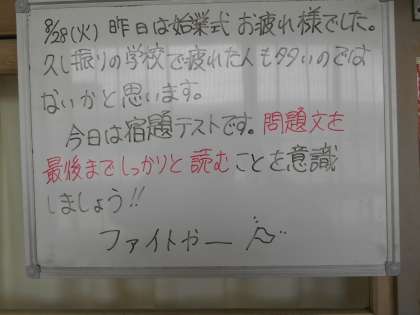 8/28(火) 昨日は始業式 お疲れ様でした。
久し振りの学校で疲れた人も多いのでは
ないかと思います。
今日は宿題テストです。問題文を
最後までしっかりと読むことを意識
しましょう!!
ファイトやー